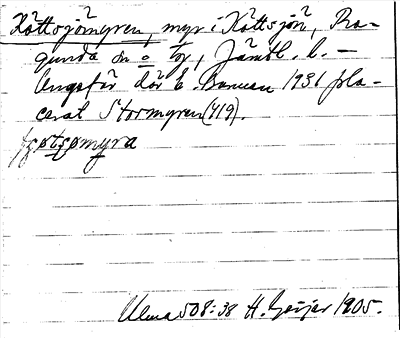 Köttsjömyren, myr i Köttsjön, Ra-
gunda sn o tg, Jämtl. l. —
Ungefär där E. Bureau 1936 pla-
cerat Stormyren (419).
tsøtsømyra
Ulma 508:38 H. Geijer 1905.